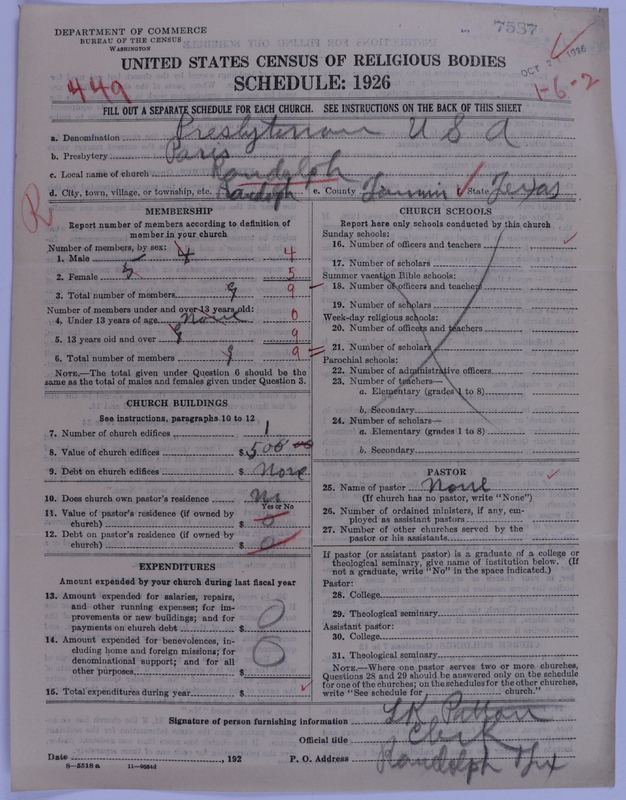 DEPARTMENT OF COMMERCE
BUREAU OF THE CENSUS
WASHINGTON
7537
OCT 2 1926
UNITED STATES CENSUS OF RELIGIOUS BODIES
SCHEDULE: 1926
449
1-6-2
FILL OUT A SEPARATE SCHEDULE FOR EACH CHURCH. SEE INSTRUCTIONS ON THE BACK OF THIS SHEET
a. Denomination Presbyterian U S A
b. Presbytery Paris
c. Local name of church Randolph
d. City, town, village, or township, etc. Randolph e. County Fannin f. State Texas
R
MEMBERSHIP
Report number of members according to definition of member in your church
Number of members, by sex:
1. Male 4 4
2. Female 5 5
3. Total number of members 9 9
Number of members under and over 13 years old:
4. Under 13 years of age None 0
5. 13 years old and over 9 9
6. Total number of members 9 9
NOTE.—The total given under Question 6 should be the
same as the total of males and females given under Question 3.
CHURCH BUILDINGS
See instructions, paragraphs 10 to 12
7. Number of church edifices 1
8. Value of church edifices $ 500 00
9. Debt on church edifices $ None
10. Does church own pastor's residence No
Yes or No
11. Value of pastor's residence (if owned by
church) $ 0
12. Debt on pastor's residence (if owned by
church) $ 0
EXPENDITURES
Amount expended by your church during last fiscal year
13. Amount expended for salaries, repairs,
and other running expenses; for im-
provements or new buildings; and for
payments on church debt $ 0
14. Amount expended for benevolences, in-
cluding home and foreign missions; for
denominational support; and for all
other purposes $ 0
15. Total expenditures during year $
CHURCH SCHOOLS
Report here only schools conducted by this church
Sunday schools:
16. Number of officers and teachers
17. Number of scholars
Summer vacation Bible schools:
18. Number of officers and teachers
19. Number of scholars
Week-day religious schools:
20. Number of officers and teachers
21. Number of scholars
Parochial schools:
22. Number of administrative officers
23. Number of teachers—
a. Elementary (grades 1 to 8)
b. Secondary
24. Number of scholars—
a. Elementary (grades 1 to 8)
b. Secondary
PASTOR
25. Name of pastor None
(If church has no pastor, write "None")
26. Number of ordained ministers, if any, em-
ployed as assistant pastors
27. Number of other churches served by the
pastor or his assistants
If pastor (or assistant pastor) is a graduate of a college or
theological seminary, give name of institution below. (If
not a graduate, write "No" in the space indicated.)
Pastor:
28. College
29. Theological seminary
Assistant pastor:
30. College
31. Theological seminary
NOTE.—Where one pastor serves two or more churches,
Questions 28 and 29 should be answered only on the schedule
for one of the churches; on the schedules for the other churches,
write "See schedule for church."
Signature of person furnishing information Patton
Official title Clerk
Date , 192 P. O. Address Randolph Tex
8—5518 a